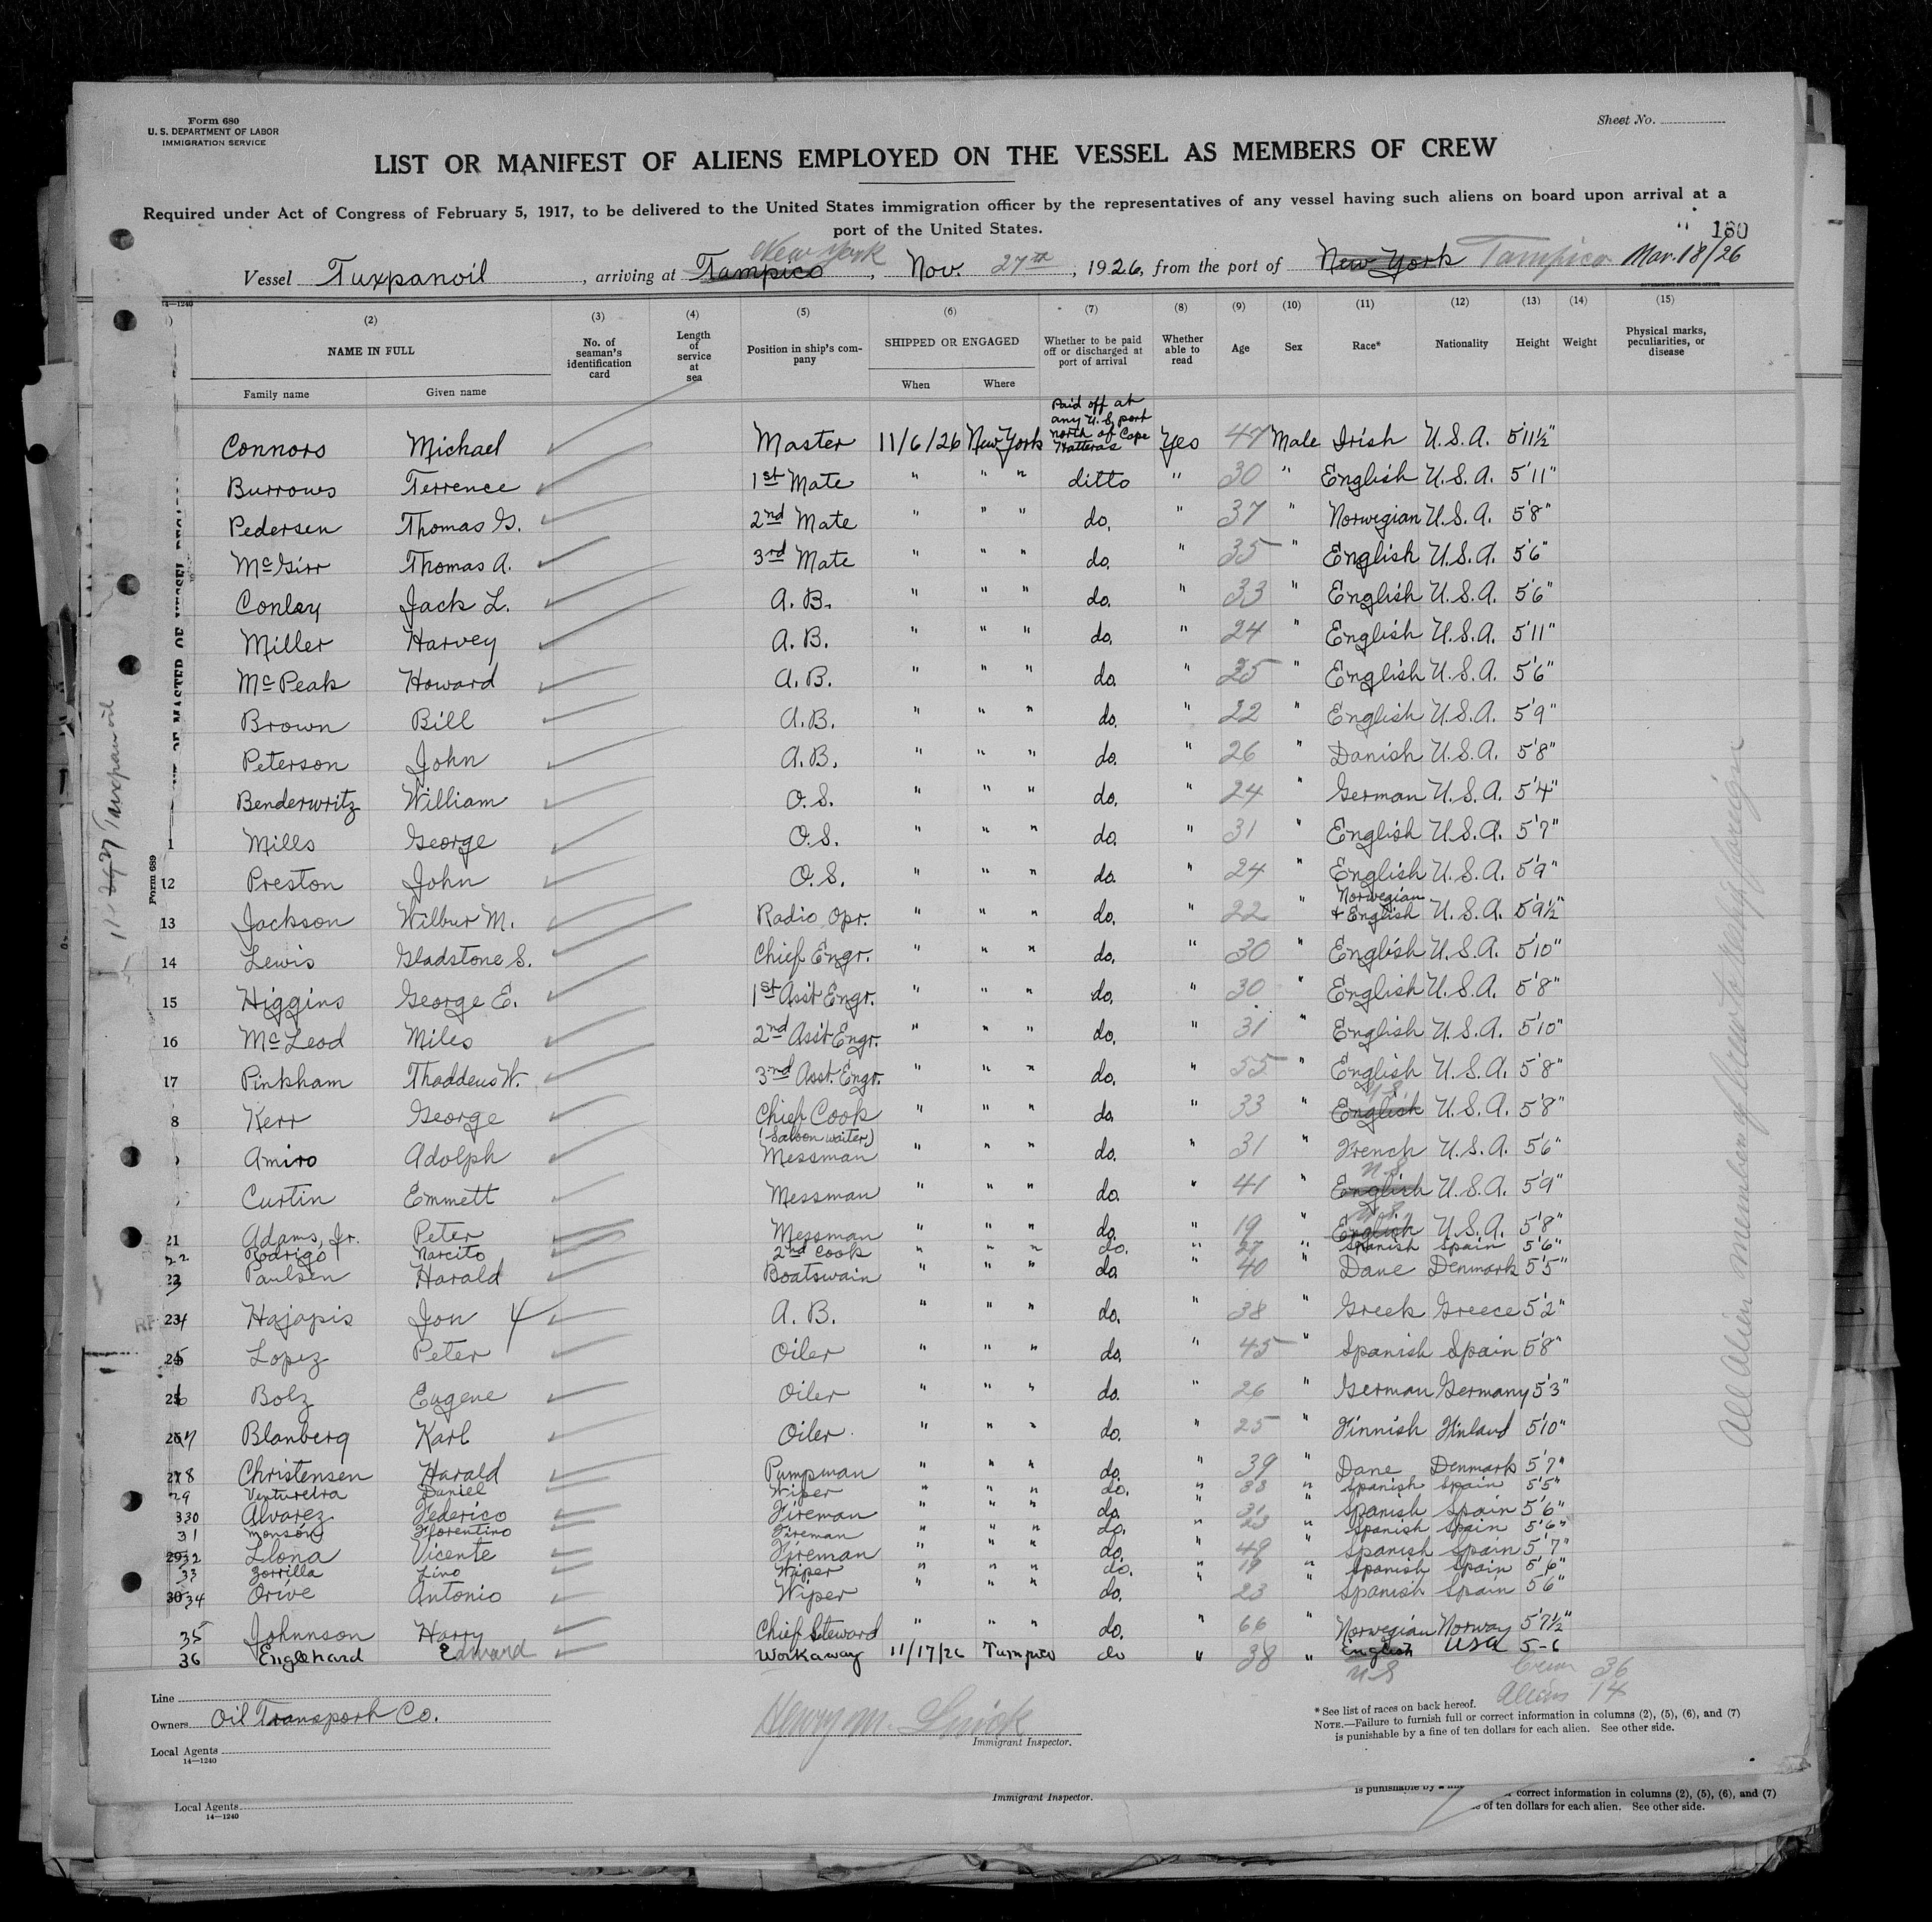 Form 680
U. S. DEPARTMENT OF LABOR
IMMIGRATION SERVICE
Sheet No.
LIST OR MANIFEST OF ALIENS EMPLOYED ON THE VESSEL AS MEMBERS OF CREW
Required under Act of Congress of February 5, 1917, to be delivered to the United States immigration officer by the representatives of any vessel having such aliens on board upon arrival at a
port of the United States.
180
Vessel Tuxpanoil, arriving at Tampico New York, Nov. 27th, 1926, from the port of New York Tampico Nov. 18/26
14—1240
(2) (3) (4) (5) (6) (7) (8) (9) (10) (11) (12) (13) (14) (15)
NAME IN FULL No. of seaman's identification card Length of service at sea Position in ship's company SHIPPED OR ENGAGED Whether to be paid off or discharged at port of arrival Whether able to read Age Sex Race* Nationality Height Weight Physical marks, peculiarities, or disease
Family name Given name When Where
Connors Michael Master 11/6/26 New York Paid off at any U.S. port north of Cape Hatteras Yes 47 Male Irish U.S.A. 5'11½"
Burrows Terrence 1st Mate " " " ditto " 30 " English U.S.A. 5'11"
Pedersen Thomas G. 2nd Mate " " " do. " 37 " Norwegian U.S.A. 5'8"
McGirr Thomas A. 3rd Mate " " " do. " 35 " English U.S.A. 5'6"
Conley Jack L. A.B. " " " do. " 33 " English U.S.A. 5'6"
Miller Harvey A.B. " " " do. " 24 " English U.S.A. 5'11"
McPeak Howard A.B. " " " do. " 25 " English U.S.A. 5'6"
Brown Bill A.B. " " " do. " 22 " English U.S.A. 5'9"
Peterson John A.B. " " " do. " 26 " Danish U.S.A. 5'8"
Benderwritz William O.S. " " " do. " 24 " German U.S.A. 5'4"
1 Mills George O.S. " " " do. " 31 " English U.S.A. 5'7"
12 Preston John O.S. " " " do. " 24 " English U.S.A. 5'9"
13 Jackson Wilbur M. Radio Opr. " " " do. " 22 " Norwegian + English U.S.A. 5'9½"
14 Lewis Gladstone S. Chief Engr. " " " do. " 30 " English U.S.A. 5'10"
15 Higgins George E. 1st Ass't Engr. " " " do. " 30 " English U.S.A. 5'8"
16 McLeod Miles 2nd Ass't Engr. " " " do. " 31 " English U.S.A. 5'10"
17 Pinkham Thaddeus W. 3nd Asst. Engr. " " " do. " 55 " English U.S.A. 5'8"
8 Kerr George Chief Cook " " " do. " 33 " English U.S. U.S.A. 5'8"
Amiro Adolph (Saloon waiter) Messman " " " do. " 31 " French U.S.A. 5'6"
Curtin Emmett Messman " " " do. " 41 " English U.S. U.S.A. 5'9"
21 Adams, Jr. Peter Messman " " " do. " 19 " English U.S. U.S.A. 5'8"
22 Rodrigo Narcito 2nd Cook " " " do. " 27 " Spanish Spain 5'6"
23 Paulsen Harald Boatswain " " " do. " 40 " Dane Denmark 5'5"
234 Hajapis Jon 4 A.B. " " " do. " 38 " Greek Greece 5'2"
245 Lopez Peter Oiler " " " do. " 45 " Spanish Spain 5'8"
256 Bolz Eugene Oiler " " " do. " 26 " German Germany 5'3"
267 Blanberg Karl Oiler " " " do. " 25 " Finnish Finland 5'10"
278 Christensen Harald Pumpman " " " do. " 39 " Dane Denmark 5'7"
29 Ventureira Daniel Wiper " " " do. " 38 " Spanish Spain 5'5"
30 Alvarez Federico Fireman " " " do. " 31 " Spanish Spain 5'6"
31 Monsón Florentino Fireman " " " do. " 23 " Spanish Spain 5'6"
2932 Llona Vicente Fireman " " " do. " 49 " Spanish Spain 5'7"
33 Zorrilla Lino Wiper " " " do. " 19 " Spanish Spain 5'6"
3034 Orive Antonio Wiper " " " do. " 23 " Spanish Spain 5'6"
35 Johnnson Harry Chief Steward " " " do. " 66 " Norwegian Norway 5'7½"
36 Englehard Edward Workaway 11/17/26 Tampico do " 38 " English U.S USA 5-6
Crew 36
Aliens 14
Line
Owners Oil Transport Co.
Local Agents
14—1240
Immigrant Inspector.
* See list of races on back hereof.
NOTE.—Failure to furnish full or correct information in columns (2), (5), (6), and (7)
is punishable by a fine of ten dollars for each alien. See other side.
All alien members of crew to reship foreign
Form 689
Tuxpanoil
Local Agents
14—1240
Immigrant Inspector.
correct information in columns (2), (5), (6), and (7)
of ten dollars for each alien. See other side.